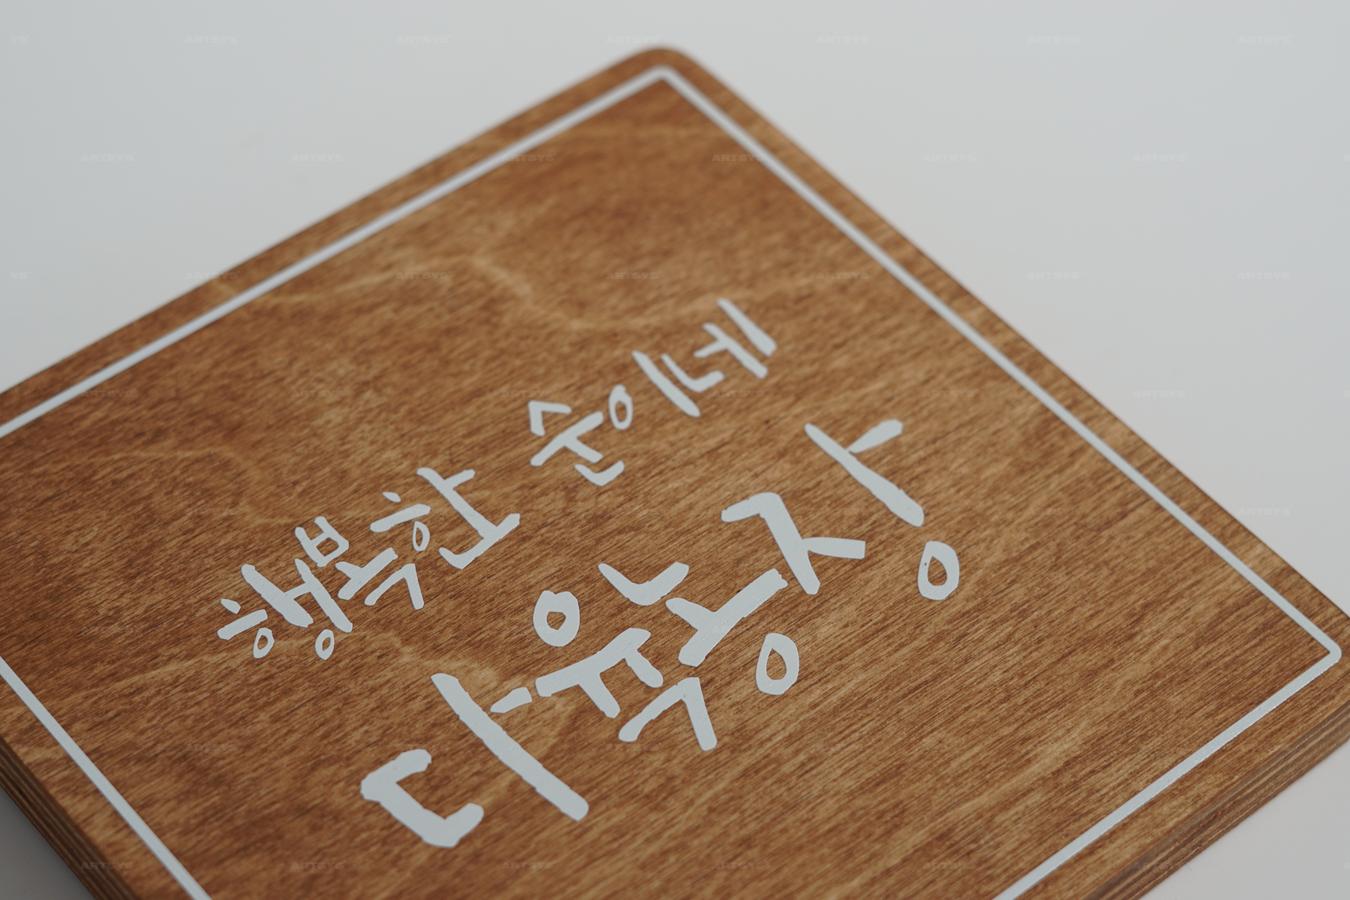 행복한 순이네
다육농장